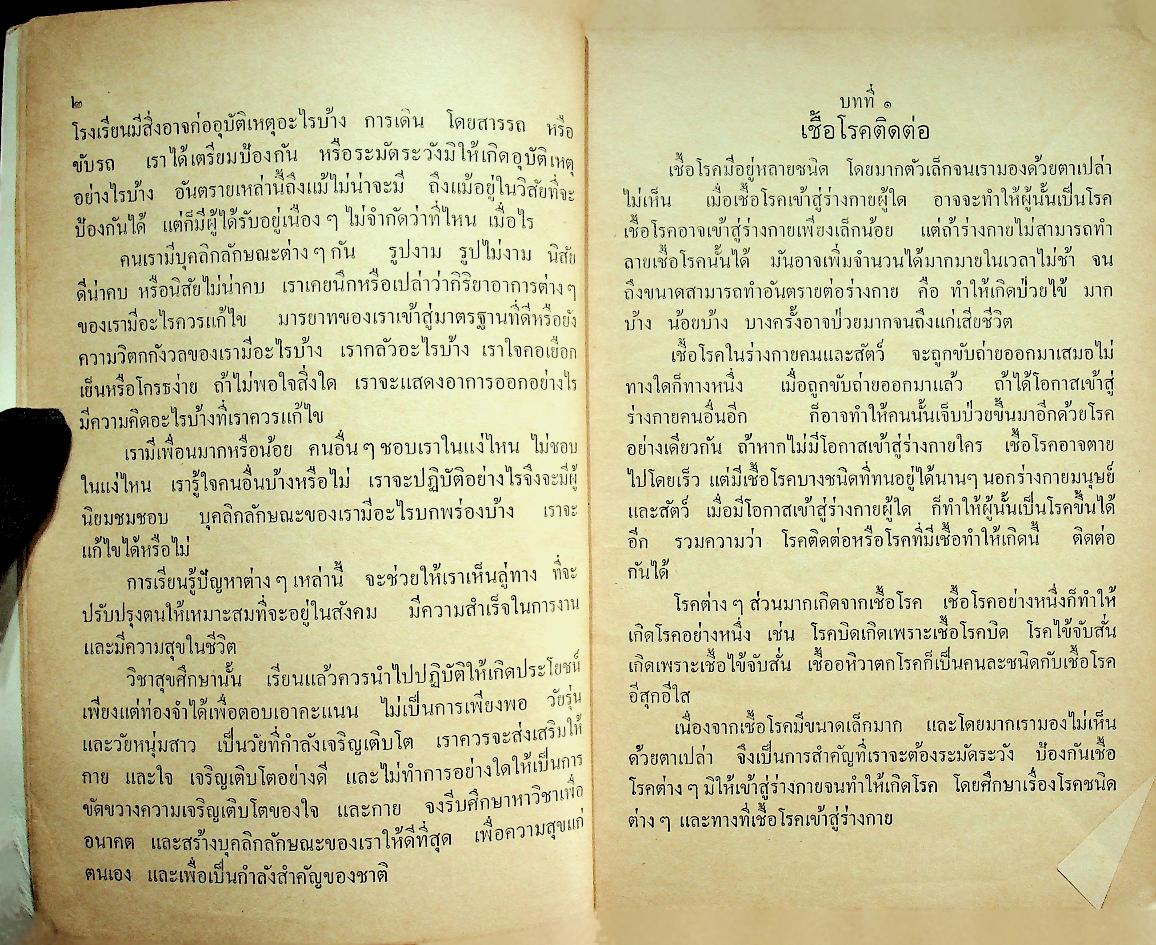 ๒
โรงเรียนมีสิ่งอาจก่ออุบัติเหตุอะไรบ้าง การเดิน โดยสารรถ หรือ
ขับรถ เราได้เตรียมป้องกัน หรือระมัดระวังมิให้เกิดอุบัติเหตุ
อย่างไรบ้าง อันตรายเหล่านี้ถึงแม้ไม่น่าจะมี ถึงแม้อยู่ในวิสัยที่จะ
ป้องกันได้ แต่ก็มีผู้ได้รับอยู่เนือง ๆ ไม่จำกัดว่าที่ไหน เมื่อไร
คนเรามีบุคลิกลักษณะต่าง ๆ กัน รูปงาม รูปไม่งาม นิสัย
ดีน่าคบ หรือนิสัยไม่น่าคบ เราเคยนึกหรือเปล่าว่ากิริยาอาการต่าง ๆ
ของเรามีอะไรควรแก้ไข มารยาทของเราเข้าสู่มาตรฐานที่ดีหรือยัง
ความวิตกกังวลของเรามีอะไรบ้าง เรากลัวอะไรบ้าง เราใจคอเยือก
เย็นหรือโกรธง่าย ถ้าไม่พอใจสิ่งใด เราจะแสดงอาการออกอย่างไร
มีความคิดอะไรบ้างที่เราควรแก้ไข
เรามีเพื่อนมากหรือน้อย คนอื่น ๆ ชอบเราในแง่ไหน ไม่ชอบ
ในแง่ไหน เรารู้ใจคนอื่นบ้างหรือไม่ เราจะปฏิบัติอย่างไรจึงจะมีผู้
นิยมชมชอบ บุคลิกลักษณะของเรามีอะไรบกพร่องบ้าง เราจะ
แก้ไขได้หรือไม่
การเรียนรู้ปัญหาต่าง ๆ เหล่านี้ จะช่วยให้เราเห็นลู่ทาง ที่จะ
ปรับปรุงตนให้เหมาะสมที่จะอยู่ในสังคม มีความสำเร็จในการงาน
และมีความสุขในชีวิต
วิชาสุขศึกษานั้น เรียนแล้วควรนำไปปฏิบัติให้เกิดประโยชน์
เพียงแต่ท่องจำได้เพื่อตอบเอาคะแนน ไม่เป็นการเพียงพอ วัยรุ่น
และวัยหนุ่มสาว เป็นวัยที่กำลังเจริญเติบโต เราควรจะส่งเสริมให้
กาย และใจ เจริญเติบโตอย่างดี และไม่ทำการอย่างใดให้เป็นการ
ขัดขวางความเจริญเติบโตของใจ และกาย จงรีบศึกษาหาวิชาเพื่อ
อนาคต และสร้างบุคลิกลักษณะของเราให้ดีที่สุด เพื่อความสุขแก่
ตนเอง และเพื่อเป็นกำลังสำคัญของชาติ
บทที่ ๑
เชื้อโรคติดต่อ
เชื้อโรคมีอยู่หลายชนิด โดยมากตัวเล็กจนเรามองด้วยตาเปล่า
ไม่เห็น เมื่อเชื้อโรคเข้าสู่ร่างกายผู้ใด อาจจะทำให้ผู้นั้นเป็นโรค
เชื้อโรคอาจเข้าสู่ร่างกายเพียงเล็กน้อย แต่ถ้าร่างกายไม่สามารถทำ
ลายเชื้อโรคนั้นได้ มันอาจเพิ่มจำนวนได้มากมายในเวลาไม่ช้า จน
ถึงขนาดสามารถทำอันตรายต่อร่างกาย คือ ทำให้เกิดป่วยไข้ มาก
บ้าง น้อยบ้าง บางครั้งอาจป่วยมากจนถึงแก่เสียชีวิต
เชื้อโรคในร่างกายคนและสัตว์ จะถูกขับถ่ายออกมาเสมอไม่
ทางใดก็ทางหนึ่ง เมื่อถูกขับถ่ายออกมาแล้ว ถ้าได้โอกาสเข้าสู่
ร่างกายคนอื่นอีก ก็อาจทำให้คนนั้นเจ็บป่วยขึ้นมาอีกด้วยโรค
อย่างเดียวกัน ถ้าหากไม่มีโอกาสเข้าสู่ร่างกายใคร เชื้อโรคอาจตาย
ไปโดยเร็ว แต่มีเชื้อโรคบางชนิดที่ทนอยู่ได้นานๆ นอกร่างกายมนุษย์
และสัตว์ เมื่อมีโอกาสเข้าสู่ร่างกายผู้ใด ก็ทำให้ผู้นั้นเป็นโรคขึ้นได้
อีก รวมความว่า โรคติดต่อหรือโรคที่มีเชื้อทำให้เกิดนี้ ติดต่อ
กันได้
โรคต่าง ๆ ส่วนมากเกิดจากเชื้อโรค เชื้อโรคอย่างหนึ่งก็ทำให้
เกิดโรคอย่างหนึ่ง เช่น โรคบิดเกิดเพราะเชื้อโรคบิด โรคไข้จับสั่น
เกิดเพราะเชื้อไข้จับสั่น เชื้ออหิวาตกโรคก็เป็นคนละชนิดกับเชื้อโรค
อีสุกอีใส
เนื่องจากเชื้อโรคมีขนาดเล็กมาก และโดยมากเรามองไม่เห็น
ด้วยตาเปล่า จึงเป็นการสำคัญที่เราจะต้องระมัดระวัง ป้องกันเชื้อ
โรคต่าง ๆ มิให้เข้าสู่ร่างกายจนทำให้เกิดโรค โดยศึกษาเรื่องโรคชนิด
ต่าง ๆ และทางที่เชื้อโรคเข้าสู่ร่างกาย